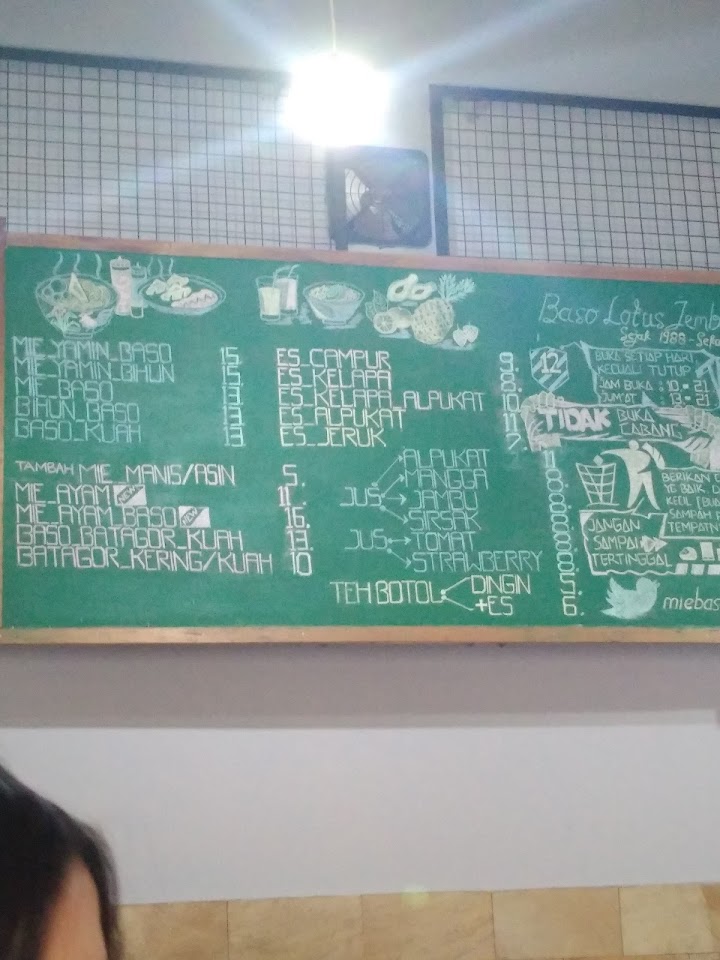 MIE_YAMIN_BASO 15.
MIE_YAMIEN_BIHUN 15.
MIE_BASO 13.
BIHUN_BASO 13.
BASO_KUAH 13.
TAMBAH MIE_MANIS/ASIN 5.
MIE_AYAM NEW 11.
MIE_AYAM_BASO NEW 16.
BASO_BATAGOR_KUAH 13.
BATAGOR_KERING/KUAH 10
ES_CAMPUR 9.
ES_KELAPA 8.
ES_KELAPA_ALPUKAT 10.
ES_ALPUKAT 11.
ES_JERUK 7.
JUS ALPUKAT 11
MANGGA 8.
JAMBU 8.
SIRSAK 8.
JUS TOMAT 8
STRAWBERRY 8
TEH BOTOL DINGIN 5.
+ES 6.
Baso Lotus Jemb
Sejak 1988 -
12
BUKA SETIAP HARI
KECUALI TUTUP
JAM BUKA : 10 - 21
JUM'AT : 13 - 21
TIDAK BUKA
CABANG
BERIKAN
YG BAIK
KECIL
SAMPAH
TEMPATN
JANGAN
SAMPAI
TERTINGGAL
miebas